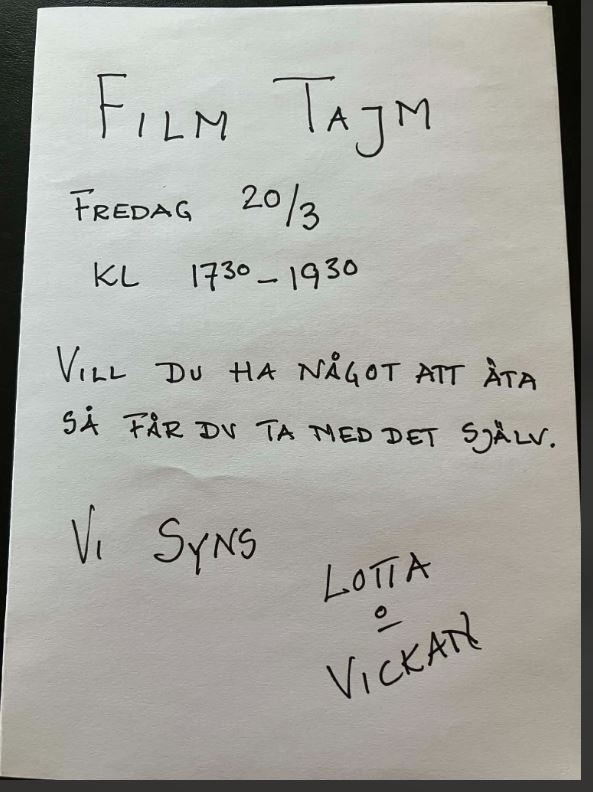 FILM TAJM
FREDAG 20/3
KL 1730-1930
VILL DU HA NÅGOT ATT ÄTA
SÅ FÅR DU TA MED DET SJÄLV.
VI SYNS
LOTTA
o
VICKAN